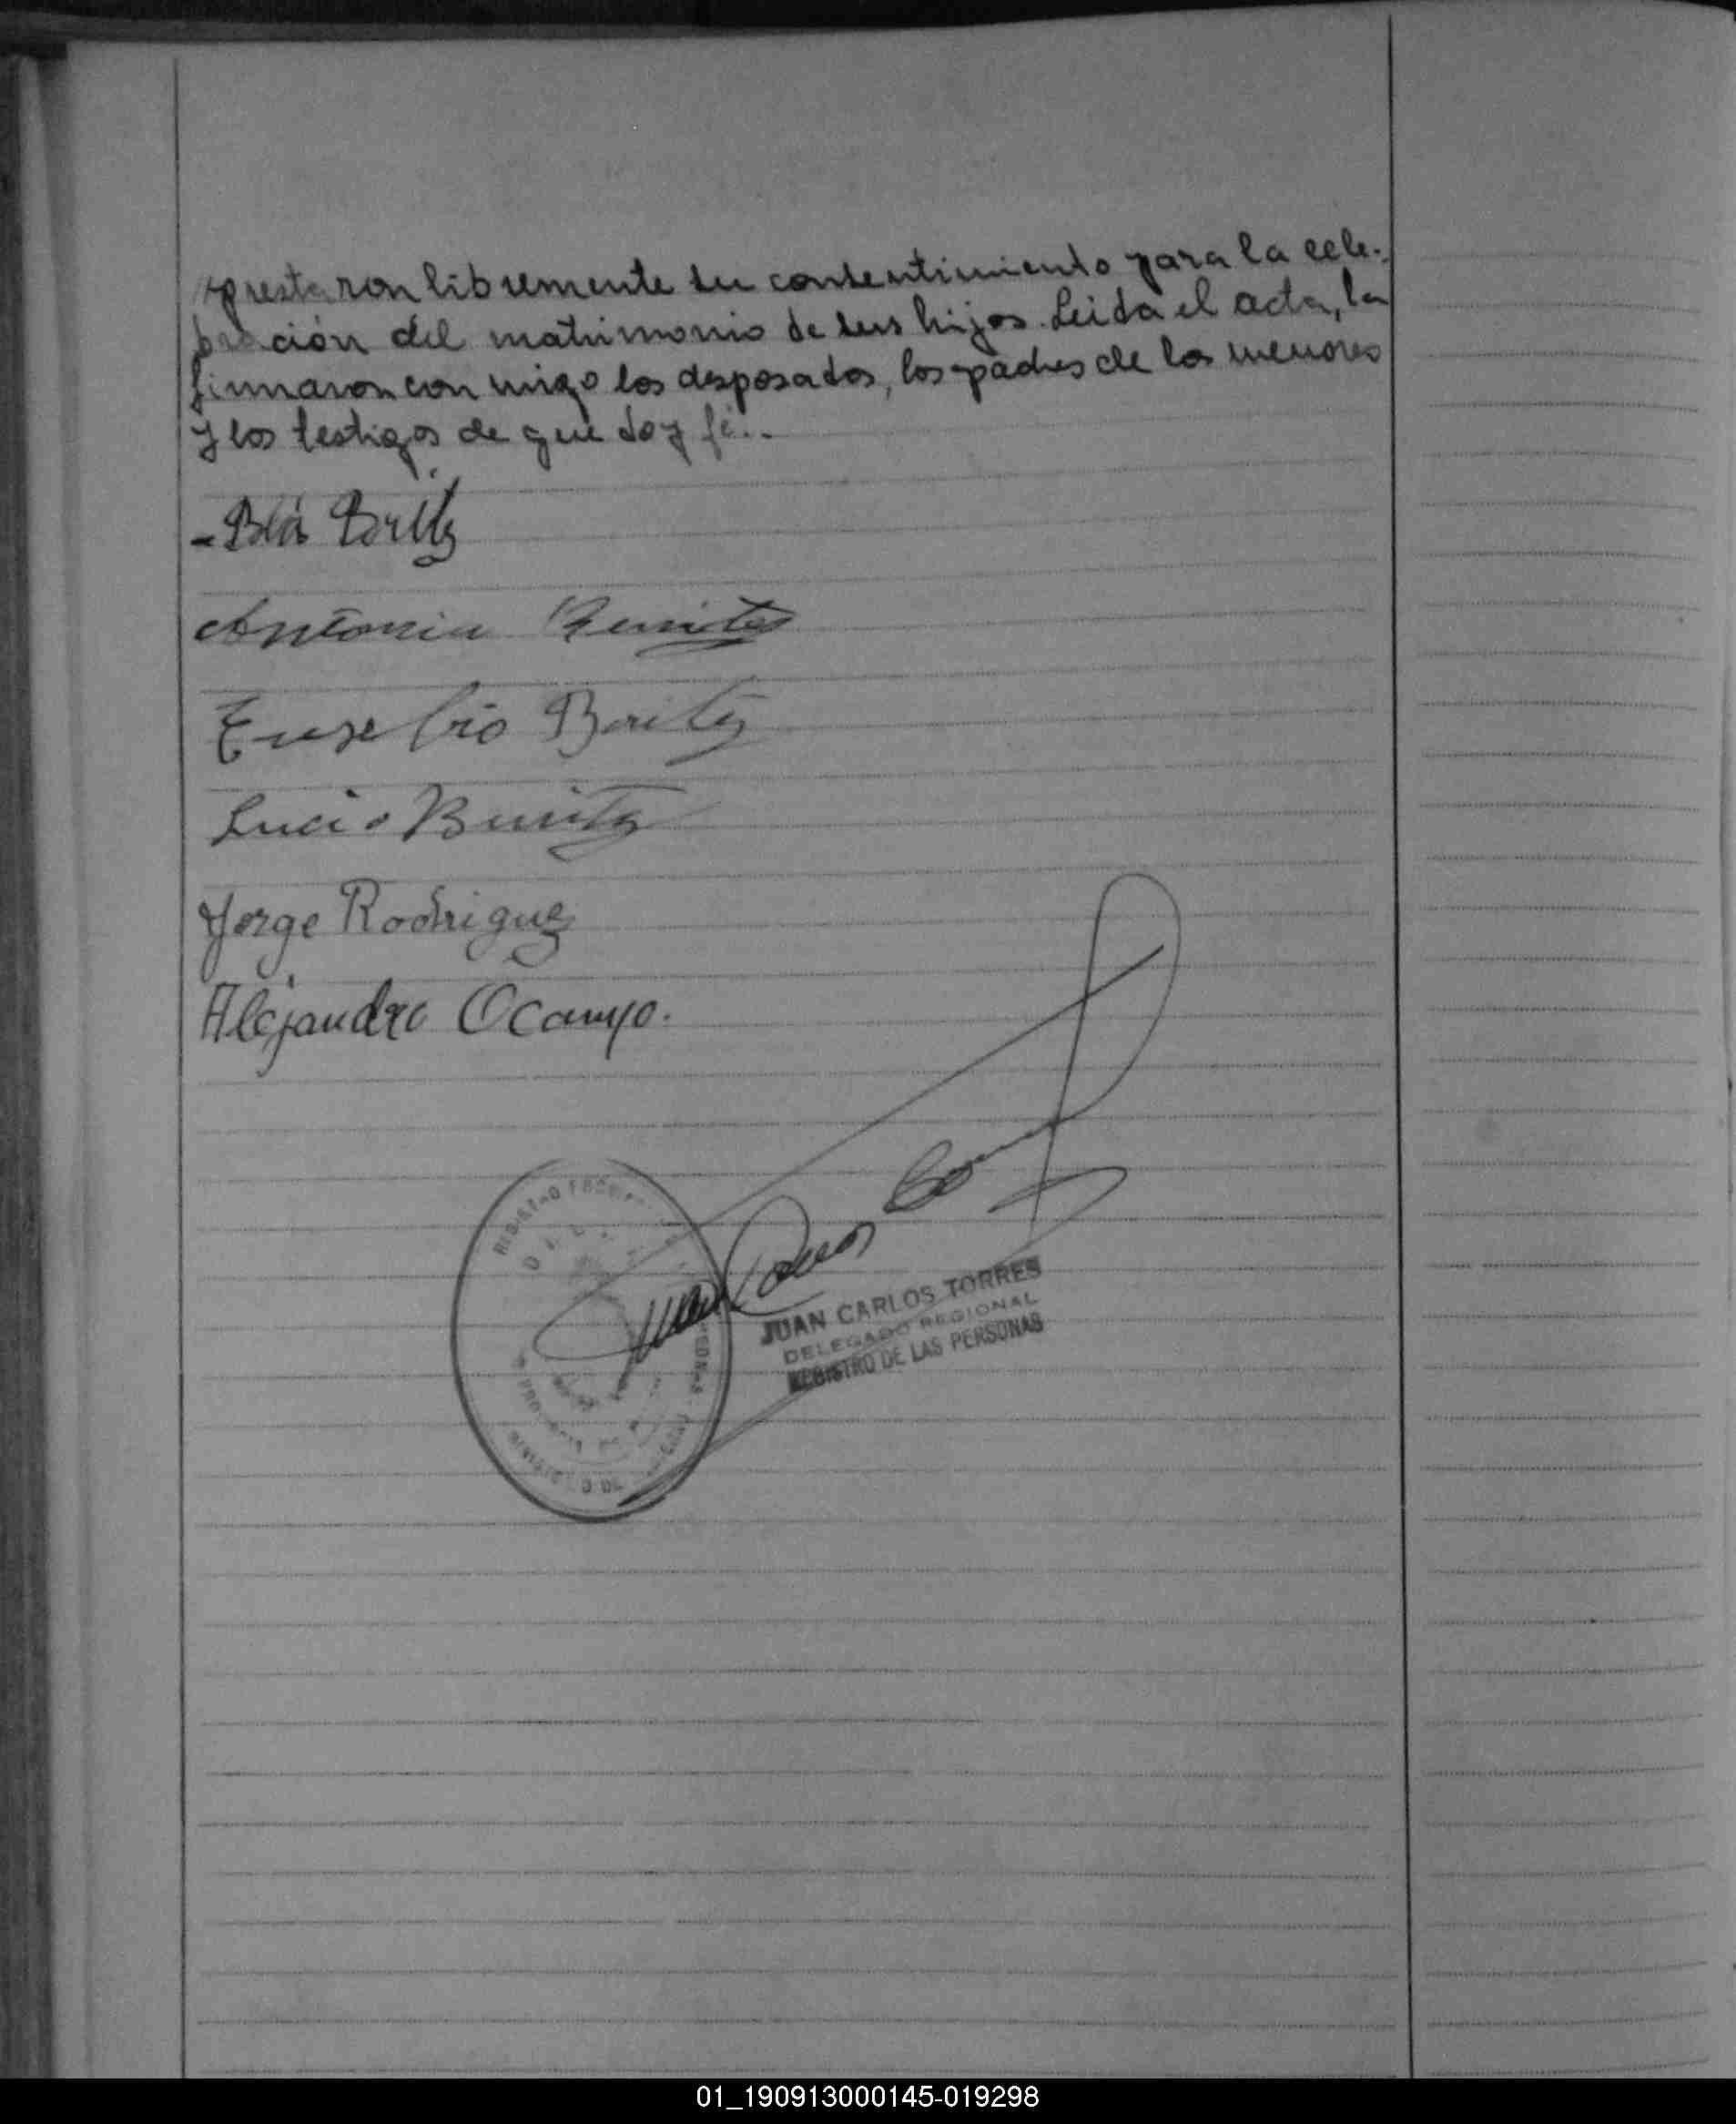 prestaron libremente su consentimiento para la cele-
bración del matrimonio de sus hijos. Leida el acta, la
firmaron con migo los desposados, los padres de los menores
y los testigos de que doy fé..
- Blás
Antonia Benites
Eusebio Benitez
Lucio Benitez
Jorge Rodriguez
Alejandro Ocampo.
JUAN CARLOS TORRES
DELEGADO REGIONAL
REGISTRO DE LAS PERSONAS
01_190913000145-019298